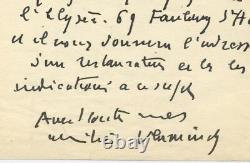 l'Elysée. 69 Faubourg S' H
et il vous donnera l'adresse
d'un restaurateur et les
indications a ce sujet
Avec toute mes